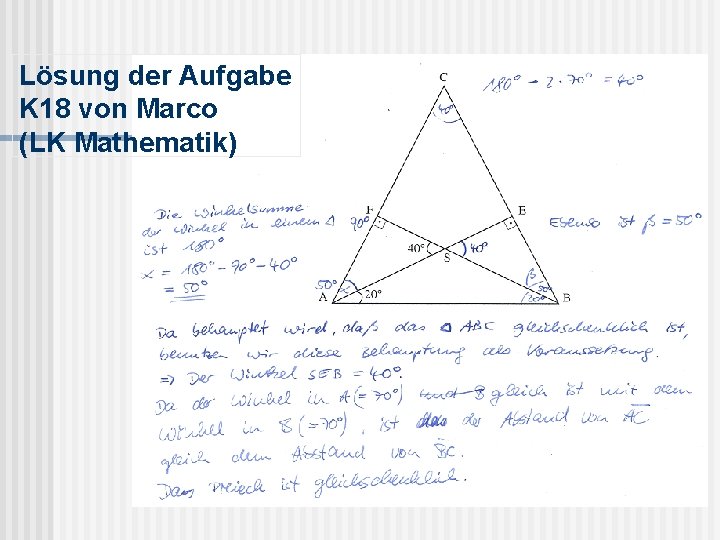 Lösung der Aufgabe
K18 von Marco
(LK Mathematik)
180° - 2·70° = 40°
C
40°
Die Winkelsumme
der Winkel in einem Δ
ist 180°
α = 180° - 70° - 40°
= 50°
90°
F
E
Ebenso ist β = 50°
40°
S
40°
50°
α
A
20°
β
50°
20°
B
Da behauptet wird, daß das Δ ABC gleichschenklich ist,
benutzen wir diese Behauptung als Voraussetzung.
=> Der Winkel SEB = 40°.
Da der Winkel in A (=70°) gleich ist mit dem
Winkel in B (=70°), ist der Abstand von AC
gleich dem Abstand von BC.
Das Dreieck ist gleichschenklich.